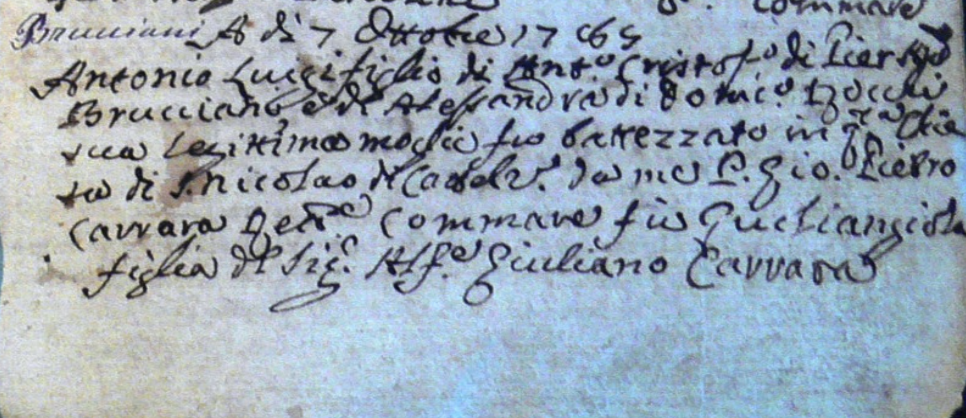 Commare
Brucciani A di 7 Ottobre 1765
Antonio Luigi figlio di Ant.º Cristof.º di Pier
Brucciani e di Alessandra di Domc.º
sua legittima moglie fu battezzato in q.ta Chie
sa di S. Nicolao di me P. Gio. Pietro
Carrara Commare fu Giuliangiola
figlia del Sig.e Alf.e Giuliano Carrara